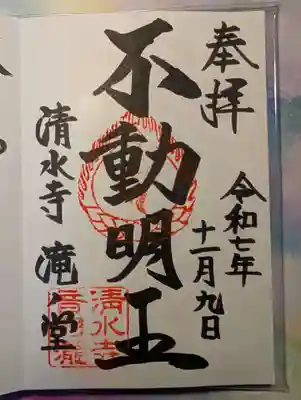 奉拝
令和七年
十一月九日
不動明王
清水寺 滝ノ堂
清水寺
音羽瀧